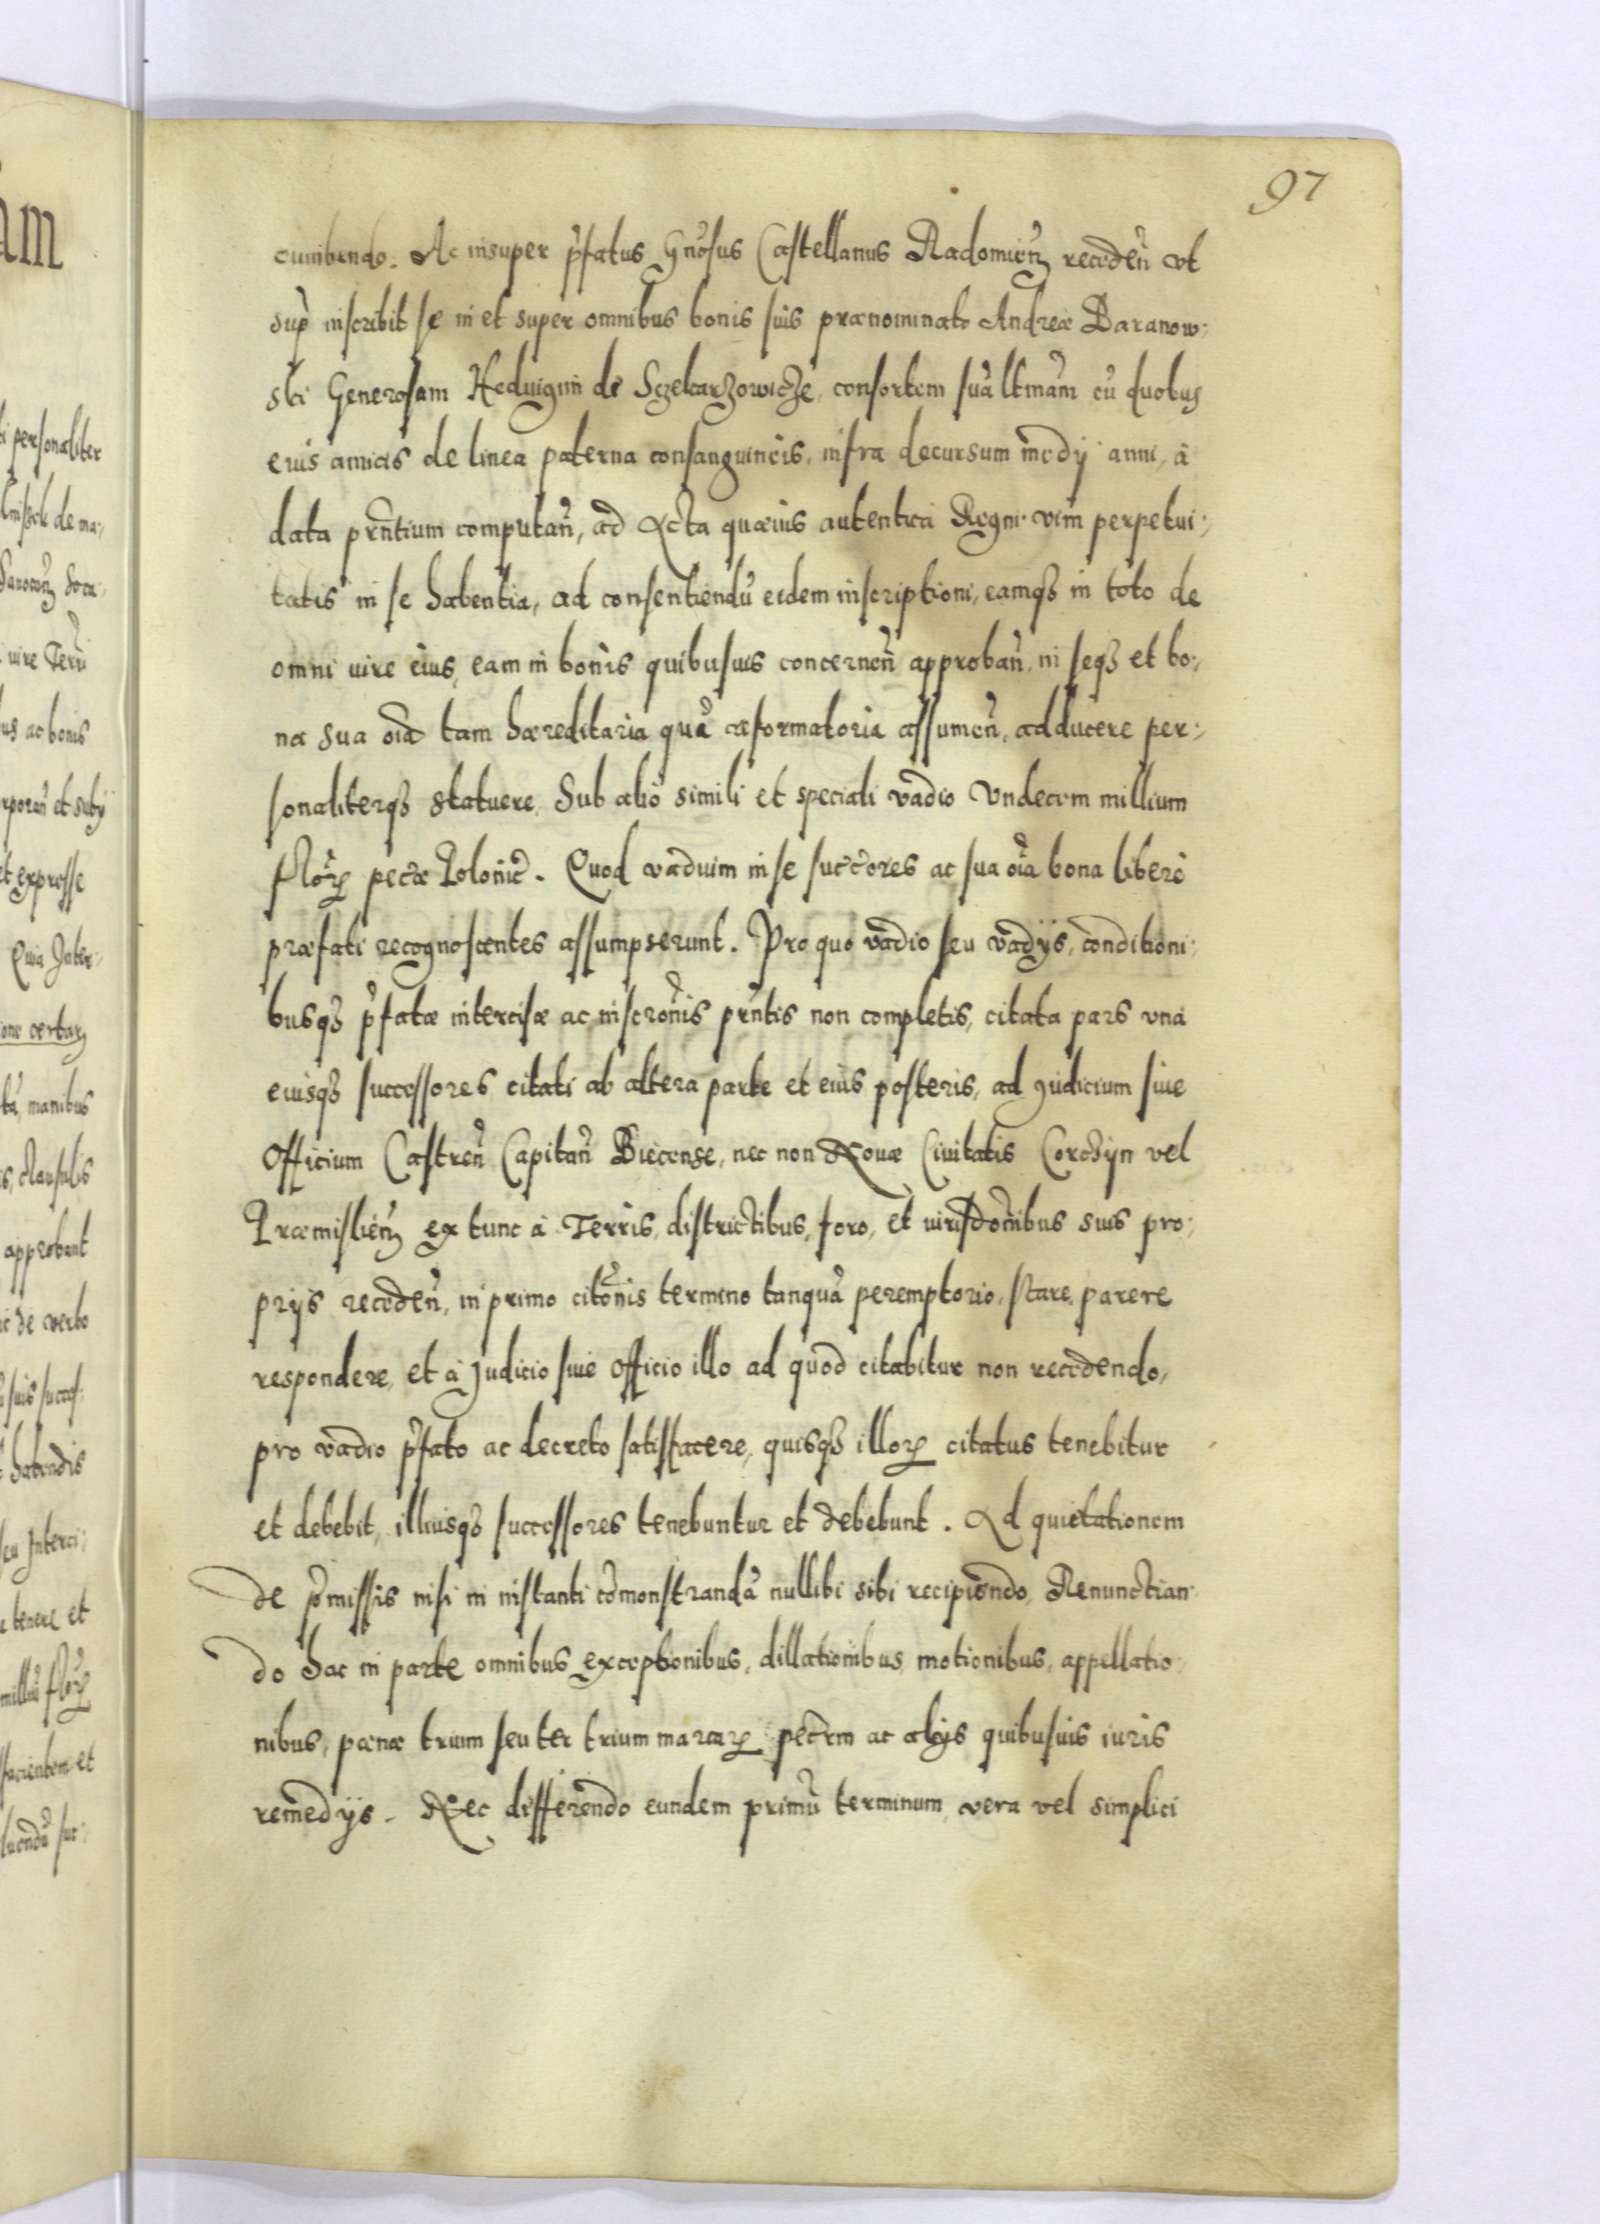 97
cumbendo. Ac insuper p̃fatus Gñosus Castellanus Radomieñ recedeñ vt
sup̃ inscribit se in et super omnibus bonis suis prænominato Andreæ Baranow:
ski Generosam Heduigim de Sczekarzowicze, consortem suã ltmãm cũ duobus
eius amicis de linea paterna consanguineis, infra decursum medij anni, à
data pñtium computañ, ad Acta quæuis autentica Regni vim perpetui:
tatis in se habentia, ad consentiendũ eidem inscriptioni, eamq₃ in toto de
omni iure eius, eam in bonis quibusuis concerneñ approbañ, in seq₃ et bo:
na sua oĩa tam hæreditaria quã reformatoria assumeñ, adducere per:
sonaliterq₃ statuere. Sub alio simili et speciali vadio Vndecem millium
flor̃ pecæ Poloñic. Quod vadium in se succõres ac sua oĩa bona liberè
præfati recognoscentes assumpserunt. Pro quo vadio seu vadijs, conditioni:
busq₃ p̃fatæ intercisæ ac inscrõnis pñtis non completis, citata pars vna
eiusq₃ successores citati ab altera parte et eius posteris, ad Judicium siue
Officium Castreñ Capitañ Biecense, nec non Nouæ Ciuitatis Corchijn vel
Præmislieñ ex tunc à Terris, districtibus, foro, et iurisdõnibus suis pro:
prijs recedeñ, in primo citõnis termino tanquã peremptorio, stare, parere
respondere, et à Judicio siue Officio illo ad quod citabitur non recedendo,
pro vadio p̃fato ac decreto satisfacere, quisq₃ illor̃ citatus tenebitur
et debebit, illiusq₃ successores tenebuntur et debebunt. Ad quietationem
de p̃missis nisi in instanti cõmonstrandã nullibi sibi recipiendo, Renunctian:
do hac in parte omnibus exceptionibus, dillationibus, motionibus, appellatio:
nibus, pænæ trium seu ter trium marcar̃ ac alijs quibusuis iuris
remedijs. Nec differendo eundem primũ terminum, vera vel simplici